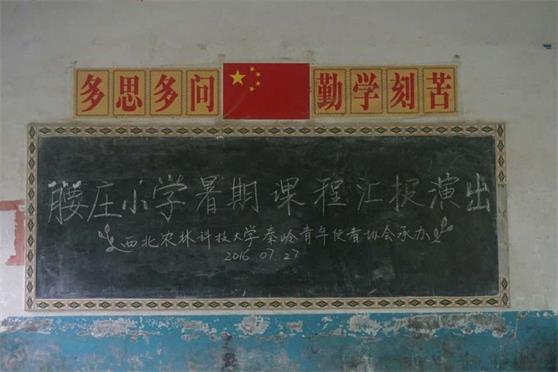 多思多问 勤学刻苦
腰庄小学暑期课程汇报演出
西北农林科技大学秦岭青年使者协会承办
2016.07.27